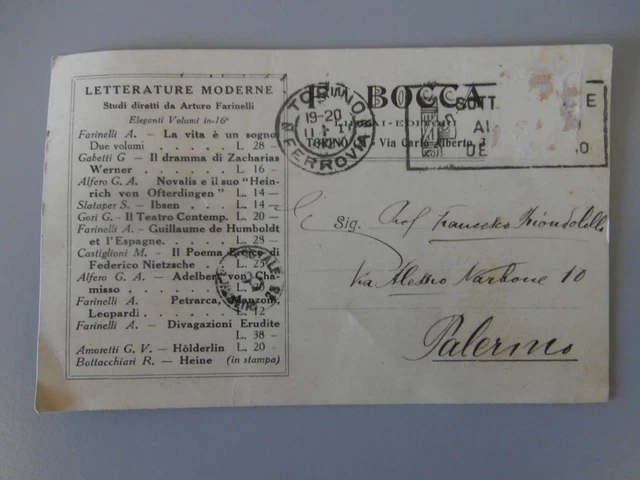 LETTERATURE MODERNE
Studi diretti da Arturo Farinelli
Eleganti Volumi in-16°
Farinelli A. — La vita è un sogno
Due volumi . . . . . L. 28 —
Gabetti G — Il dramma di Zacharias
Werner . . . . . . . L. 16 —
Alfero G. A. Novalis e il suo "Hein-
rich von Ofterdingen" L. 14 —
Slataper S. — Ibsen . . . L. 14 —
Gori G. - Il Teatro Contemp. L. 20 —
Farinelli A. — Guillaume de Humboldt
et l'Espagne. . . . . . L. 28 —
Castiglioni M. — Il Poema di
Federico Nietzsche . . . L. 25
Alfero G. A. — Adelbert von Cha-
misso . . . . . . . L. 20
Farinelli A. Petrarca, Manzoni,
Leopardi . . . . . . L. 12
Farinelli A. — Divagazioni Erudite
L. 38 —
Amoretti G. V. — Hölderlin L. 20 —
Bottacchiari R. — Heine (in stampa)
BOCCA
TORINO - Via Carlo Alberto, 3
TORINO
19-20
FERROVIA
Sig. Prof Francesco
Via Alessio Narbone 10
Palermo